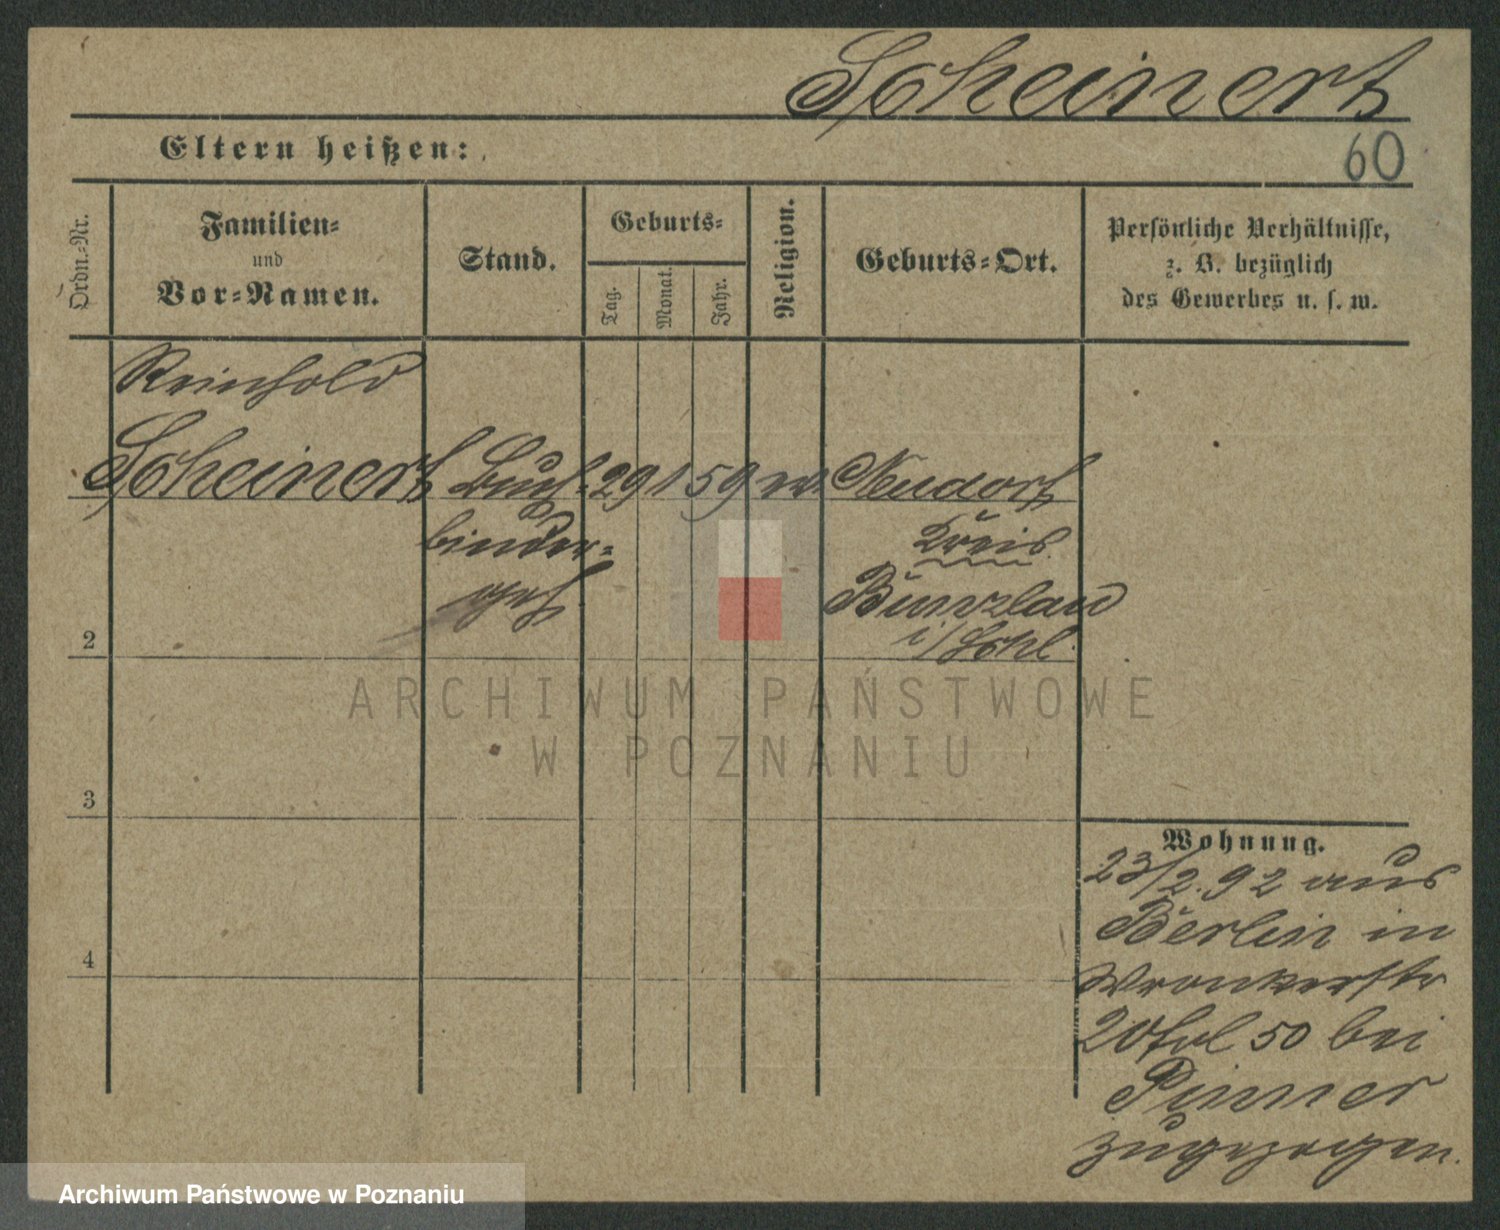 Scheinert
Eltern heißen:
60
Ordn.-Nr.
Familien-
und
Vor-Namen.
Stand.
Geburts-
Tag.
Monat.
Jahr.
Religion.
Geburts-Ort.
Persönliche Verhältnisse,
z. B. bezüglich
des Gewerbes u. s. w.
Reinhold
Scheinert Buch- 29 1 59 ev. Neudorf
binder- Kreis
geh Bunzlau
i/Schl.
2
ARCHIWUM PAŃSTWOWE
W POZNANIU
3
Wohnung.
23/2.92 aus
Berlin in
4
Wronkerstr
20 50 bei
Pinner
zugezogen.
Archiwum Państwowe w Poznaniu